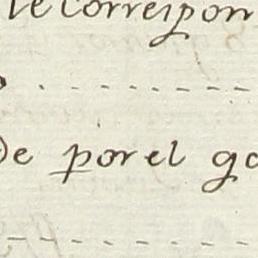 le correspon
De por el go